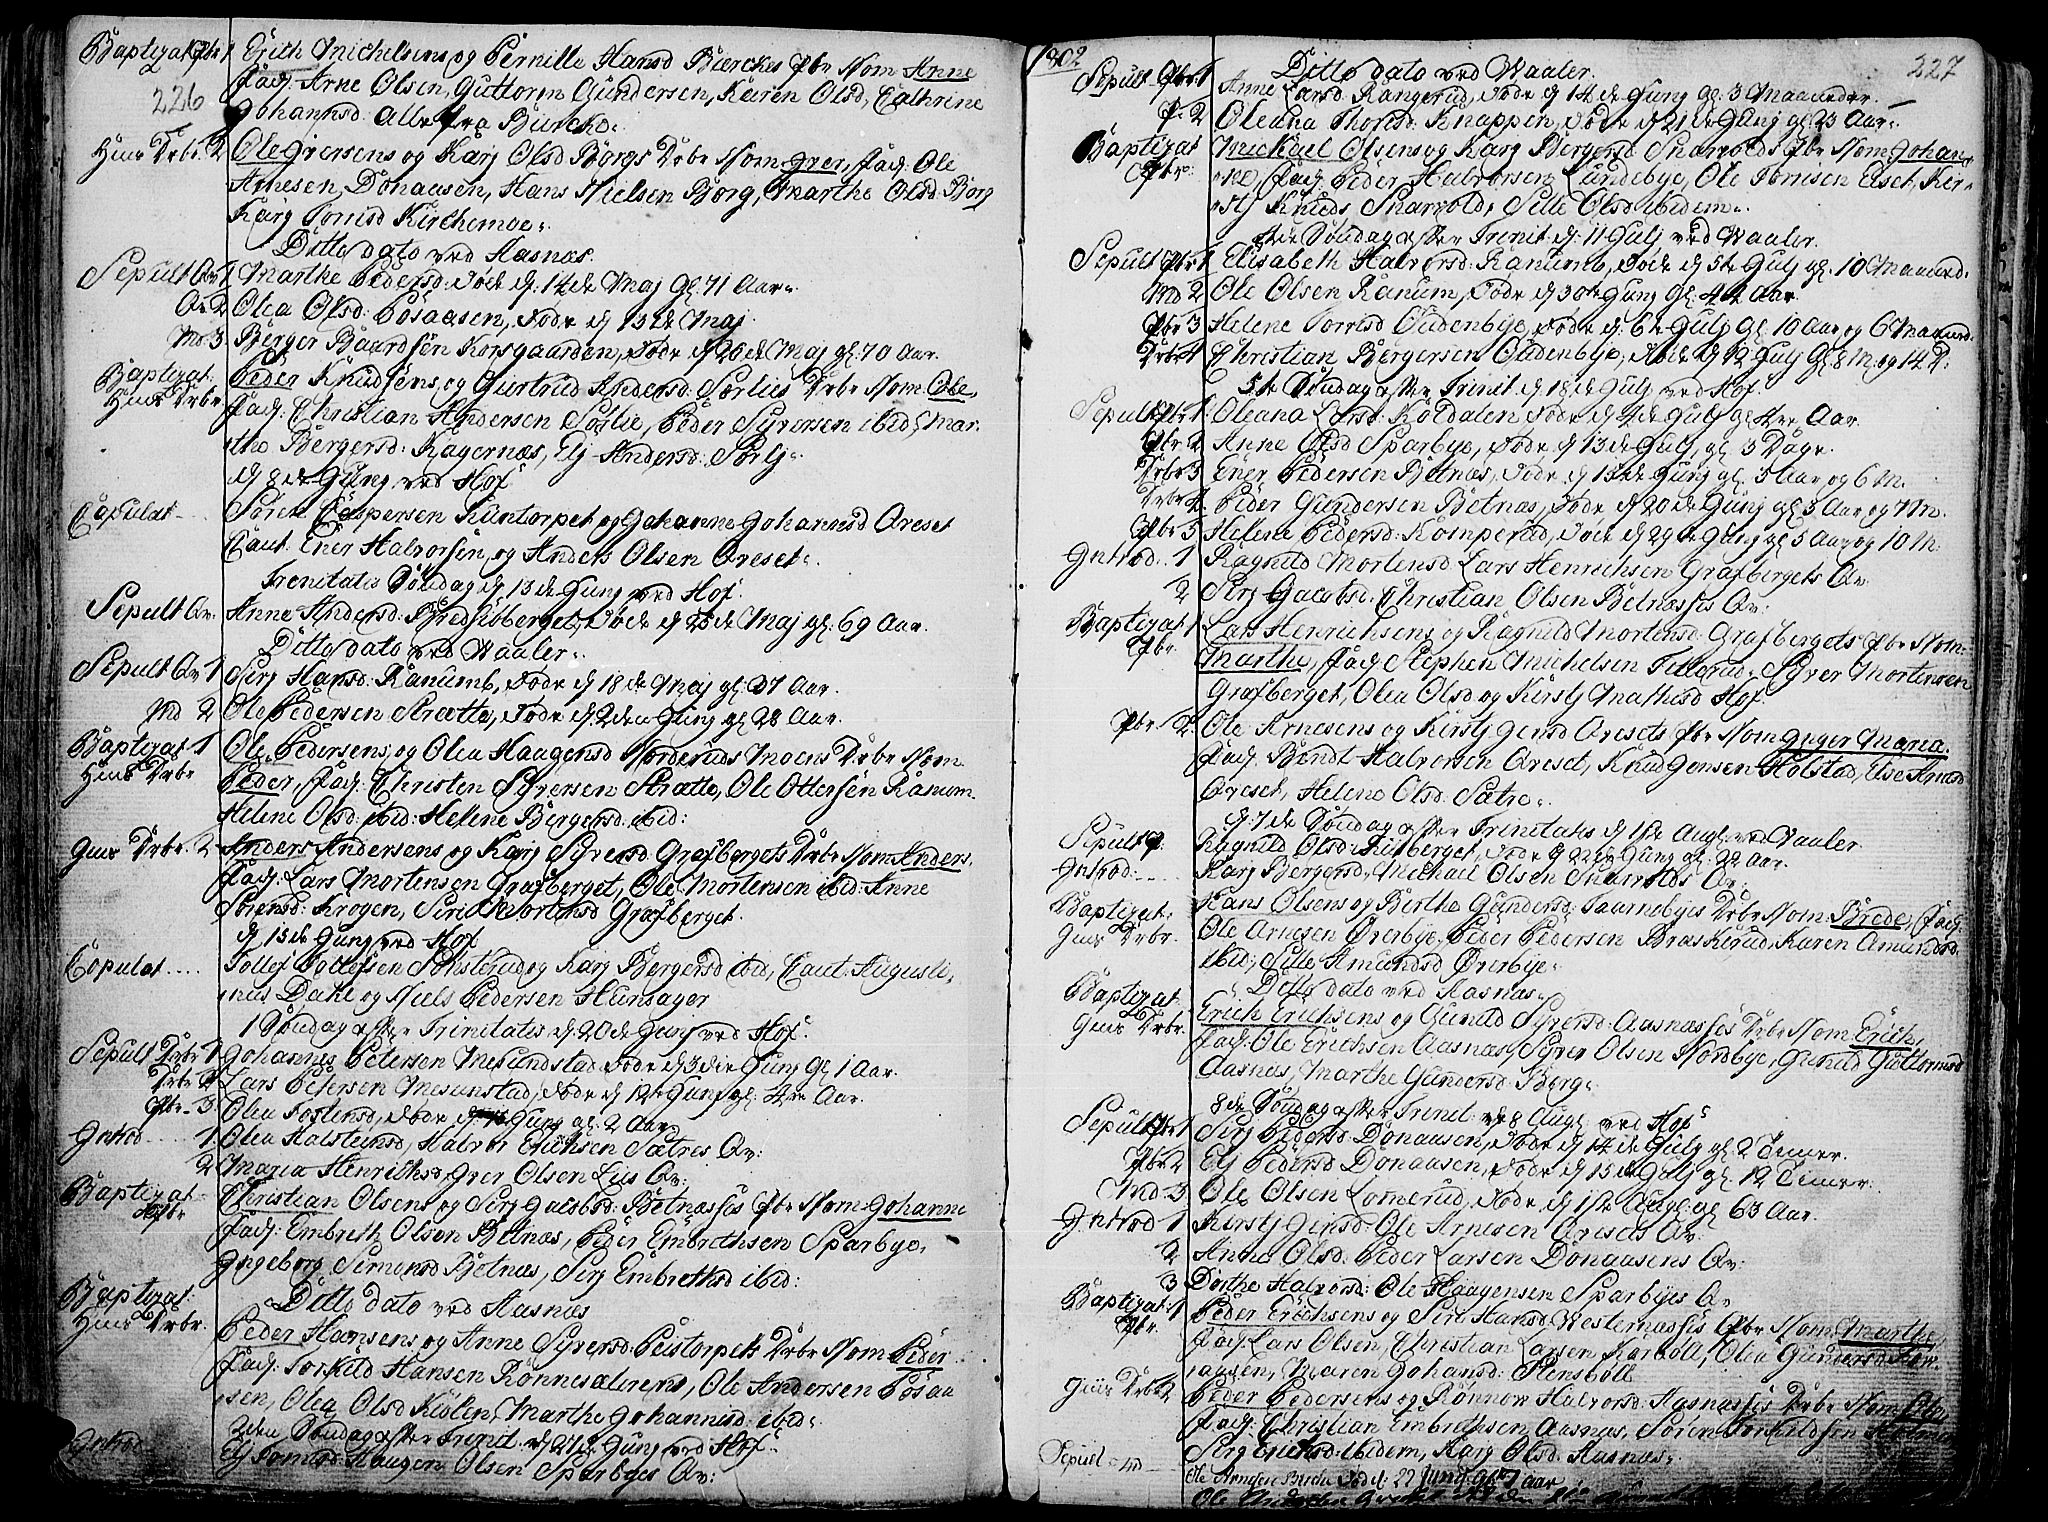 Baptizat Pbr 1 Erich Michelsens og Pernille Hansd Bierckes Pbr Nom: Anne
226 Fad: Arne Olsen, Guttorm Gundersen, Karen Olsd, Cathrine
Johannsd: Alle fra Bircke.
Hius Drbr. 2 Ole Iversens og Karj Olsd Borgs Drbr Nom: Iver, Fad: Ole
Arnesen, Donaasen, Hans Nielsen Borg, Marthe Olsd: Borg
Karj Tomisd Kirchemoe.
Ditto dato ved Aasnæs.
Sepult Qv 1 Marthe Pedersd: Døde d: 14de Maj gl: 71 Aar.
Qv. 2 Olea Olsd: Posaasen, Døde d 13de Maj
Md. 3 Berger Baardsen Korsgaarden, Døde d 26de Maj gl: 70 Aar.
Baptizat. Peder Knudsens og Gurtrud Andersd: Sørlies Drbr Nom: Ole,
Hius Drbr. Fad: Christian Andersen Sørlie, Peder Syversen ibid, Mar-
the Bergersd: Kagernæs, Elj Andersd: Sørlj.
d 8de Junj ved Hof
Copulat Søren Caspersen Kuntorpet og Johanne Johannsd Arset
Caut: Ener Halvorsen, og Anders Olsen Arset.
Trinitatis Søndag d 13de Junj ved Hof.
Sepult Qv: Anne Andersd: Bredsibberget, Døde d 28de Maj gl: 69 Aar.
Ditto dato ved Waaler.
Sepult Qv 1 Serj Hansd: Ranumb, Døde d 18de Maj gl: 37 Aar.
Md 2 Ole Pedersen Strætte, Døde d 2den Junj gl 28 Aar.
Baptizat 1 Ole Pedersens og Olea Haagensd Norderuds Moens Drbr Nom:
Hius Drbr Peder, Fad: Christen Syversen Strætte, Ole Ottersen Ranum.
Helene Olsd: ibid: Hellene Bergersd: ibid:
Jius Drbr. 2 Anders Andersens og Karj Syversd: Grafbergets Drbr Nom: Anders,
Fad: Lars Mortensen Grafberget, Ole Mortensen ibid: Anne
Sørensd: Krogen, Siri Mortensd Grafberget.
d 15de Junj ved Hof
Copulat.... Tollef Tollefsen Sønsterud og Karj Bergersd ibid, Caut: Augusti-
nus Dahl og Niels Pedersen Hunsager
1 Søndag after Trinitatis d 20de Junj ved Hof.
Sepult Drbr 1 Johannes Petersen Mesundstad, Døde d 3die Junj gl 1 Aar.
Drbr 2 Lars Petersen Mesunstad, Døde d 12te Junj gl: 4re Aar.
Pbr 3 Olea Tostensd, Døde d Junj gl: 2 Aar.
Introd.... 1. Olea Halsteinsd, Halvor Erichsen Sætres Qv:
2 Maria Henrichsd: Iver Olsen Lies Qv:
Baptizat Christian Olsens og Serj Jacobsd: Betnæssis Pbr Nom: Johanne
Pbr Fad: Embreth Olsen Betnæs, Peder Embrethsen Sparbye,
Ingeborg Simensd Betnæs, Serj Embrethsd ibid:
Baptizat: Ditto dato ved Aasnæs
Hius Drbr. Peder Hansens og Anne Syversd: Peistorpets Drbr Nom: Peder
Fad: Torkild Hansen Rønnesælerens, Ole Andersen Posaa
sen, Olea Olsd Kiølen, Marthe Johannesd: ibid.
2den Søndag after Trinit. d 27de Junj ved Hof
Introd. Elj Tomisd: Haagen Olsen Sparbyes Qv:
1802 227
Ditto dato ved Waaler.
Sepult Pbr 1 Anne Larsd: Rangerud, Døde d 14de Junj gl: 3 Maaneder
P. 2 Oleana Thorsd: Knappen, Døde d 21de Junj gl 23 Aar.
Baptizat Mickael Olsens og Karj Bergersd: Snarvolds Pbr Nom: Johan-
Pbr: ne, Fad: Peder Halvorsen Lundebye, Ole Tomisen Elset, Kir-
stj Knuds Snarvold, Sille Olsd ibidem.
4de Søndag after Trinit: d 11 Julj ved Waaler.
Sepult Pbr 1 Elisabeth Halvorsd: Ranumb, Døde d 5te Julj gl: 10 Maaned:
Md 2 Ole Olsen Ranum, Døde d 30te Junj gl 44 Aar.
Pbr 3 Helene Tomisd Oudenbye, Døde d: 6te Julj gl 10 Aar og 6 Maaned:
Drbr 4 Christian Bergersen Oudenbye, Døde d 12 Julj gl 8 M: og 14 D:
5te Søndag after Trinit d 18de Julj ved Hof.
Sepult Pbr 1 Oleana Larsd: Koldalen Døde d 4de Julj gl 4re Aar.
Pbr 2 Anne Olsd Sparbye, Døde d 13de Julj, gl 3 Dage.
Drbr 3 Ener Pedersen Betnæs, Døde d 15de Junj gl 3 Aar og 6 M.
Drbr 4. Peder Gundersen Betnæs, Døde d 20de Junj gl 3 Aar og 7 M:
Pbr 5 Helene Pedersd: Komperud, Døde d 29de Junj gl 5 Aar og 10 M:
Introd.. 1 Ragnild Mortensd: Lars Henrichsen Grafbergets Qv.
2 Serj Jacobsd: Christian Olsen Betnæssis Qv:
Baptizat 1 Lars Henrichsens og Ragnild Mortensd: Grafbergets Pbr Nom:
Pbr. Marthe, Fad: Stephen Michelsen Tellerud, Syver Mortensen
Grafberget, Olea Olsd og Kirstj Mathisd Hof.
Pbr. 2. Ole Arnesens og Kirstj Jensd Arsets Pbr Nom: Inger Maria.
Fad: Bendt Halvorsen Arset, Knud Jensen Holstad, Else Knudsd
Arset, Helene Olsd: Sætre.
d: 7de Søndag after Trinitatis d 1ste Augl: ved Waaler.
Sepult P. Ragnild Olsd: Linberget, Døde d 22de Junj gl: 22 Aar.
Introd:.... Karj Bergersd, Michael Olsen Snarvolds Qv:
Baptizat: Hans Olsens og Berthe Gundersd: Taarnebyes Drbr Nom: Brede, Fad:
Jius Drbr. Ole Arnesen Øverbye, Peder Pedersen Braskerud, Karen Amundsd:
ibid; Sille Amundsd Øverbye.
Baptizat: Ditto dato ved Aasnæs.
Jius Drbr. Erich Erichsens og Gunild Syversd: Aasnæssis Drbr Nom: Erich,
Fad: Ole Erichsen Aasnæs, Syver Olsen Nordbye, Gunild Guttormsd
Aasnæs, Marthe Gundersd: Berg.
8de Søndag after Trinit: d 8 Augl: ved Hof
Sepult Pbr 1 Serj Pedersd: Donaasen, Døde d 14de Julj gl 2 Timer.
Pbr 2 Elj Pedersd Donaasen, Døde d 15de Julj gl 12 Timer.
Md. 3 Ole Olsen Lomerud, Døde d 1ste Augl: gl 63 Aar.
Introd 1 Kirstj Jensd: Ole Arnesen Arsets Qv.
2 Anne Olsd: Peder Larsen Donaasens Qv:
3 Dorthe Halvorsd: Ole Haagensen Sparbyes Qv
Baptizat: 1 Peder Erichsens og Siri Hansd: Westernæssis Pbr Nom: Marthe,
Pbr. Fad: Lars Olsen, Christian Larsen Karboll, Olea Gundersd
aasen, Maren Johansd: Flensboll
Jius Drbr 2 Peder Pedersens og Rønnow Halvorsd: Aasnæssis Drbr Nom: Ole,
Fad: Christian Embrethsen Aasnæs, Søren Torkildsen
Serj Erichsd: ibidem, Karj Olsd: Aasnæs.
Sepult Md Ole Arnesen Bircke Død d: 22 Junj gl 7 Aar